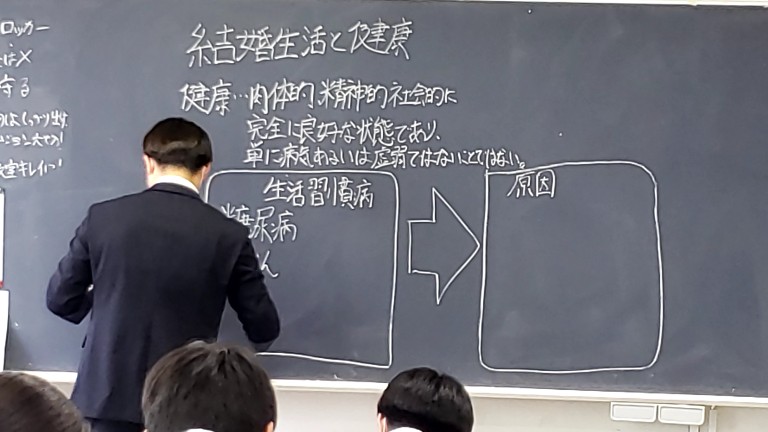 ロッカー
はX
守る
結婚生活と健康
健康…肉体的精神的社会的に
完全に良好な状態であり、
単に病気あるいは虚弱ではないことではない。
生活習慣病
糖尿病
ん
原因